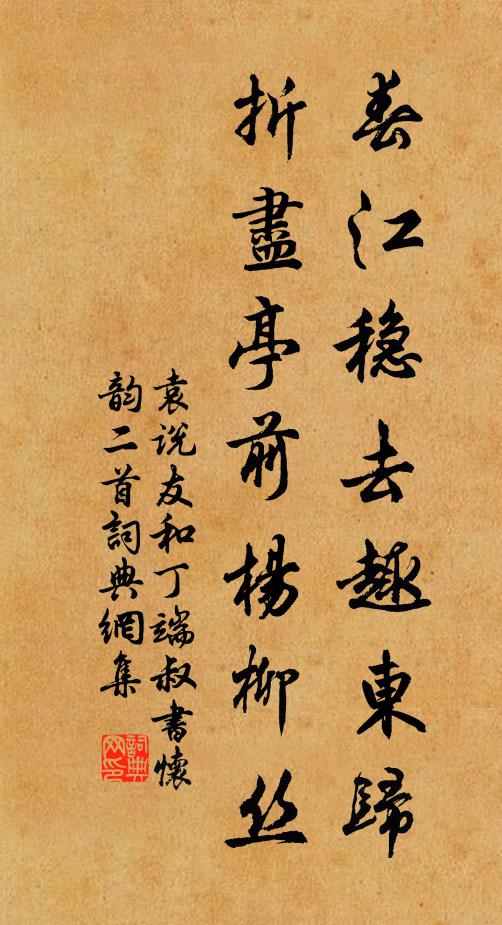 春江穏去趣東歸
折盡亭前楊柳丝
袁説友和丁端叔書懷
韵二首詞典網集
詞典
网印